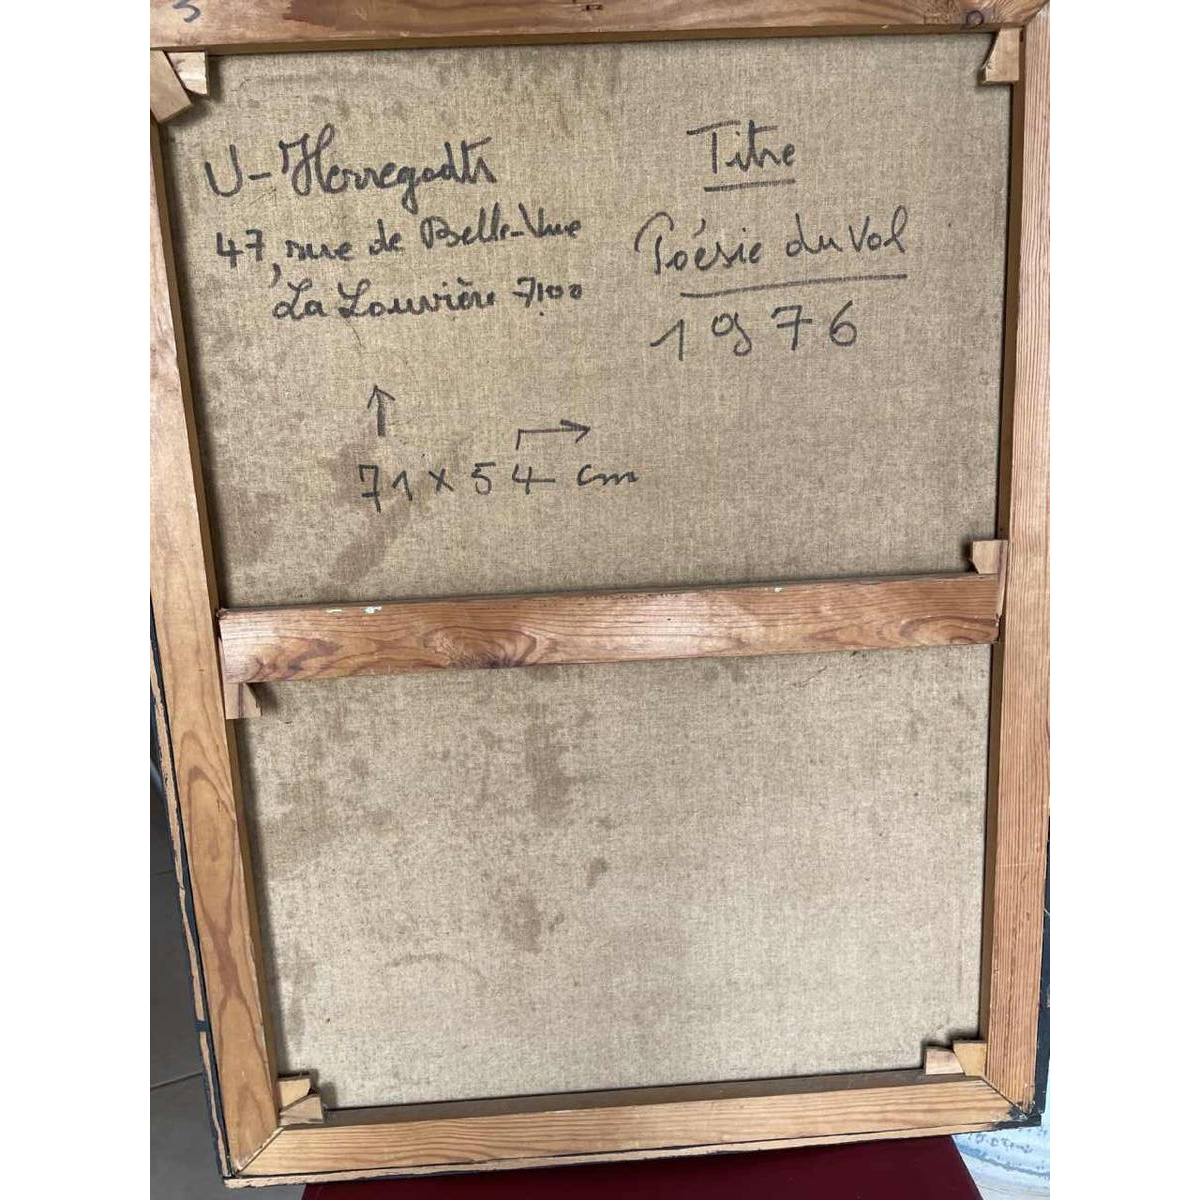 U-Herregodts
47, rue de Belle-Vue
La Louvière 7100
Titre
Poésie du Vol
1976
71 x 54 cm